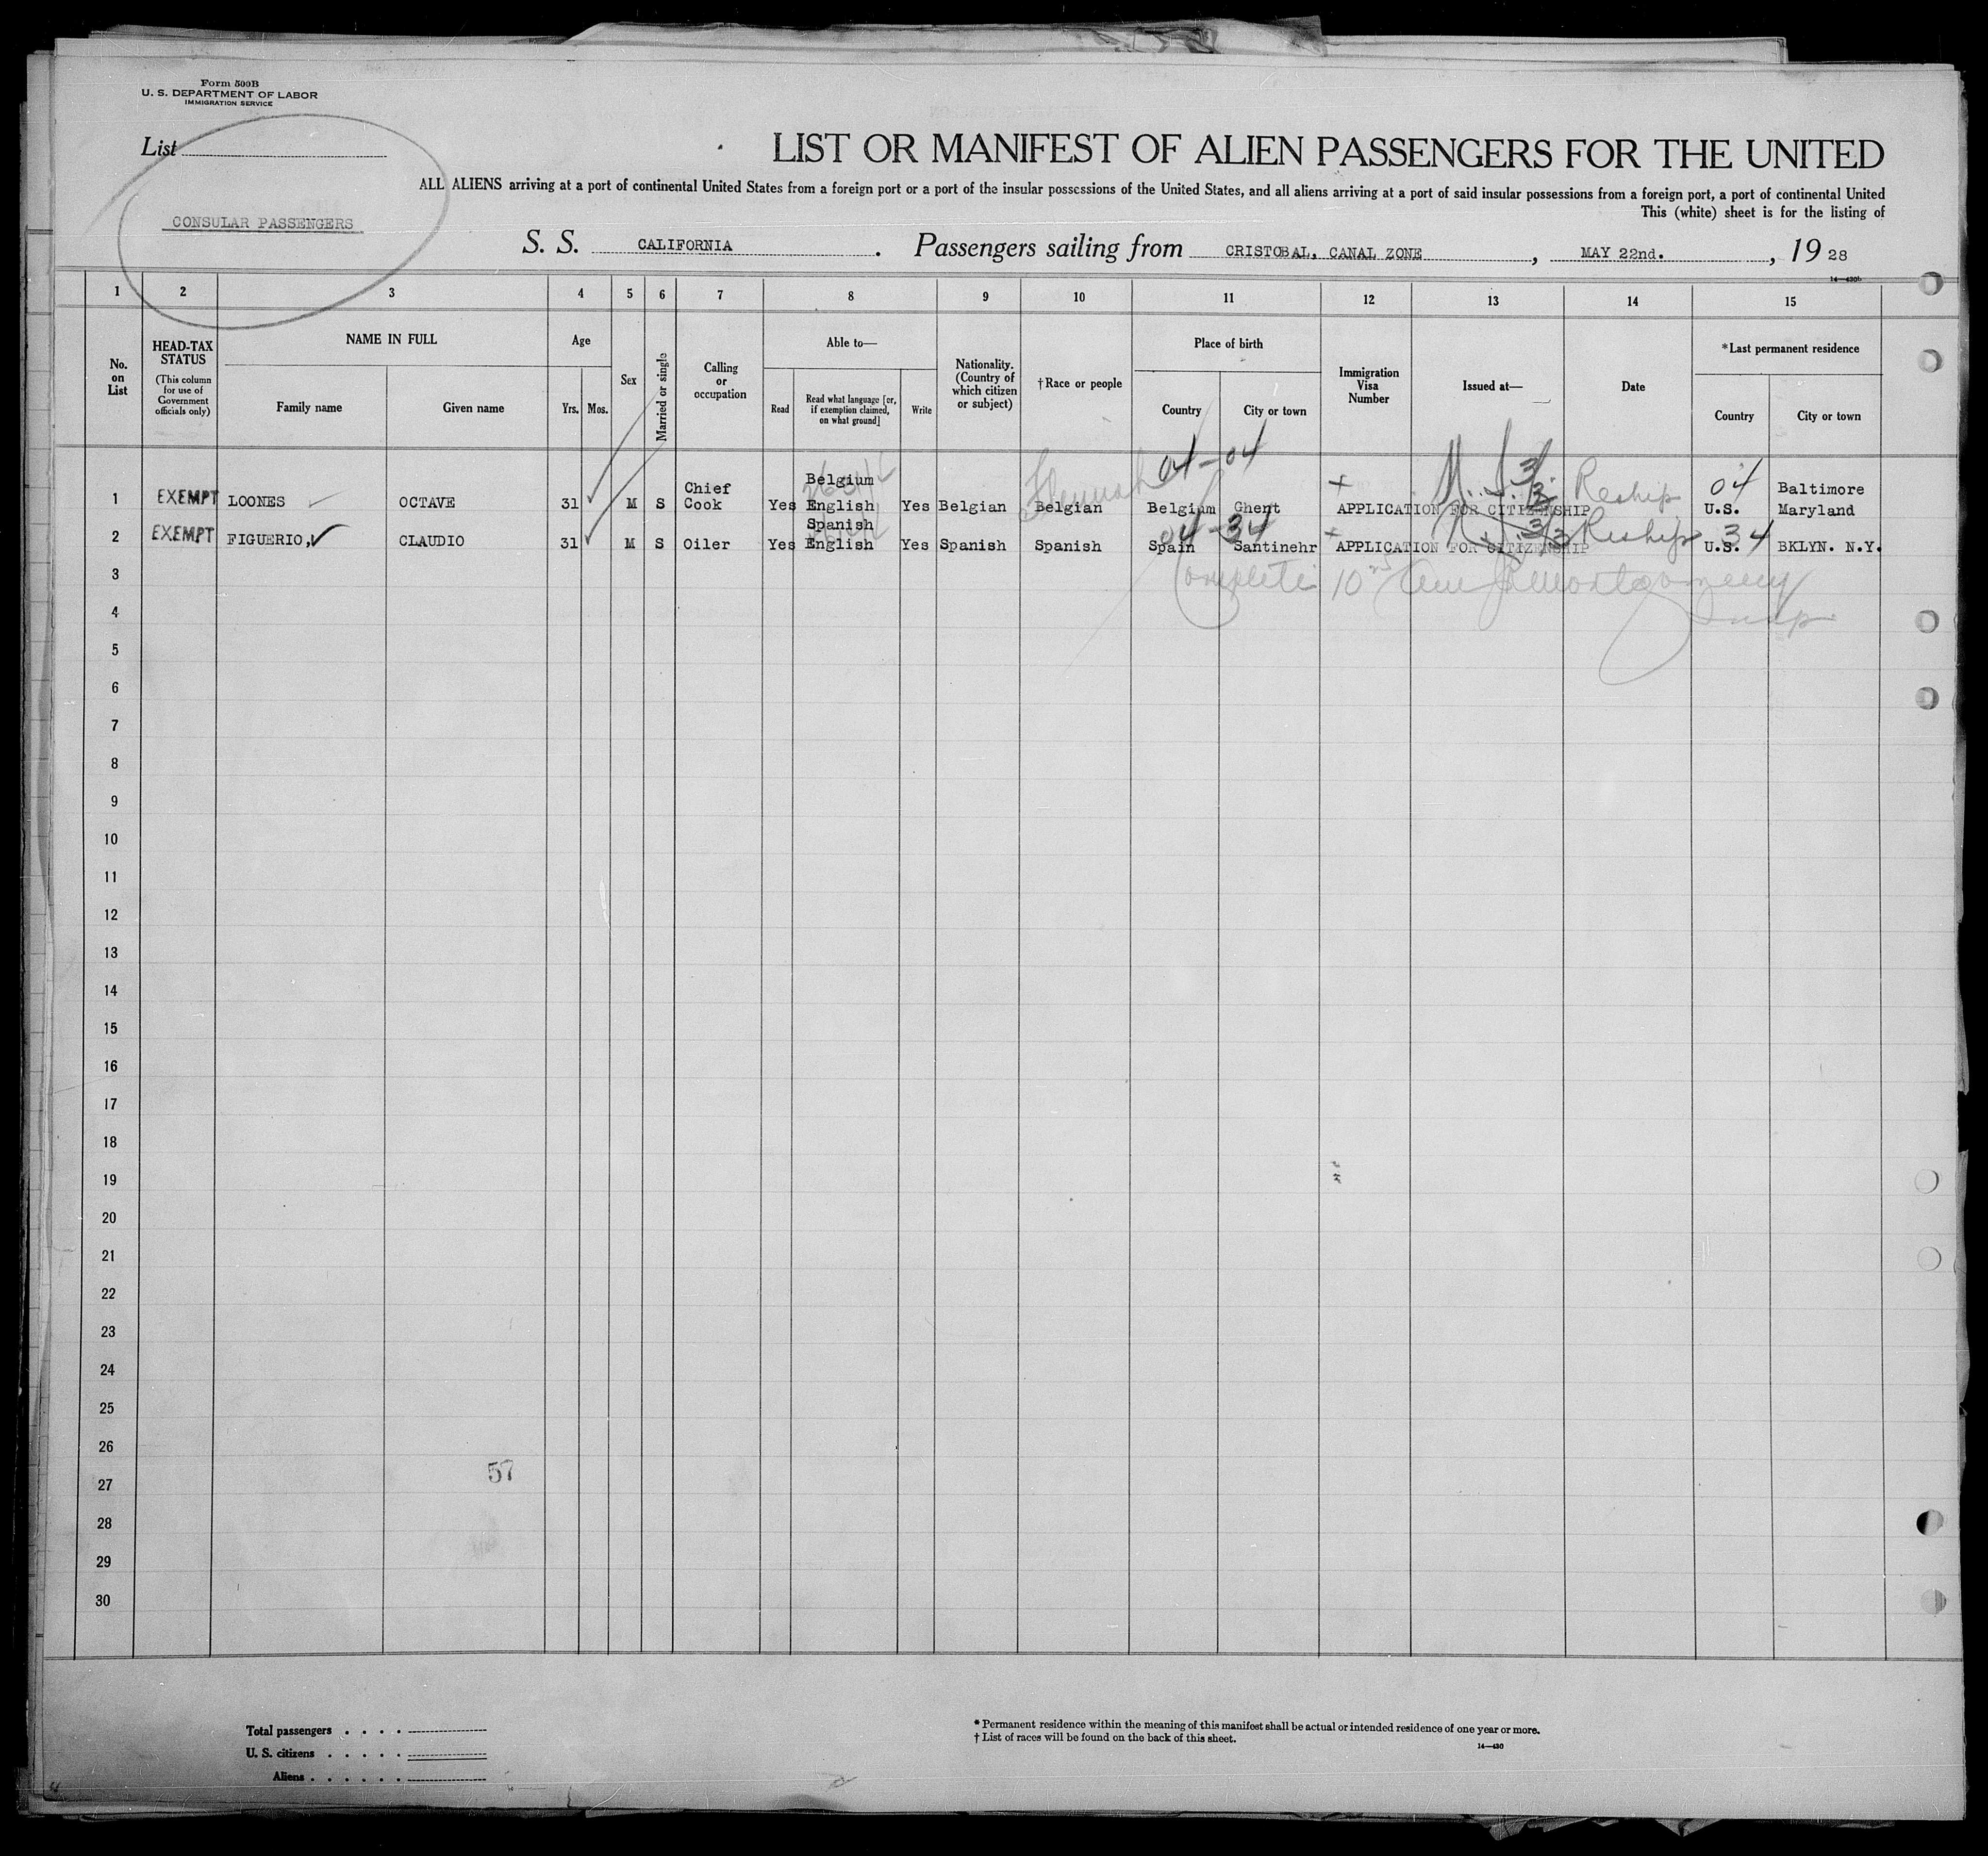 Form 500B
U. S. DEPARTMENT OF LABOR
IMMIGRATION SERVICE
List
CONSULAR PASSENGERS
LIST OR MANIFEST OF ALIEN PASSENGERS FOR THE UNITED
ALL ALIENS arriving at a port of continental United States from a foreign port or a port of the insular possessions of the United States, and all aliens arriving at a port of said insular possessions from a foreign port, a port of continental United
This (white) sheet is for the listing of
S. S. CALIFORNIA . Passengers sailing from CRISTOBAL, CANAL ZONE , MAY 22nd. , 19 28
14—430b
1 2 3 4 5 6 7 8 9 10 11 12 13 14 15
No. on List
HEAD-TAX STATUS
(This column for use of Government officials only)
NAME IN FULL
Family name
Given name
Age
Yrs.
Mos.
Sex
Married or single
Calling or occupation
Able to—
Read
Read what language [or, if exemption claimed, on what ground]
Write
Nationality. (Country of which citizen or subject)
†Race or people
Place of birth
Country
City or town
Immigration Visa Number
Issued at—
Date
*Last permanent residence
Country
City or town
04-04
1 EXEMPT LOONES OCTAVE 31 M S Chief Cook Yes Belgium English Yes Belgian Belgian Belgium Ghent APPLICATION FOR CITIZENSHIP Reship 04 U.S. Baltimore Maryland
04-34
2 EXEMPT FIGUERIO, CLAUDIO 31 M S Oiler Yes Spanish English Yes Spanish Spanish Spain Santinehr APPLICATION FOR CITIZENSHIP Reship 34 U.S. BKLYN. N.Y.
3
4
5
6
7
8
9
10
11
12
13
14
15
16
17
18
19
20
21
22
23
24
25
26
27
57
28
29
30
Total passengers
U. S. citizens
Aliens
* Permanent residence within the meaning of this manifest shall be actual or intended residence of one year or more.
† List of races will be found on the back of this sheet.
14—430